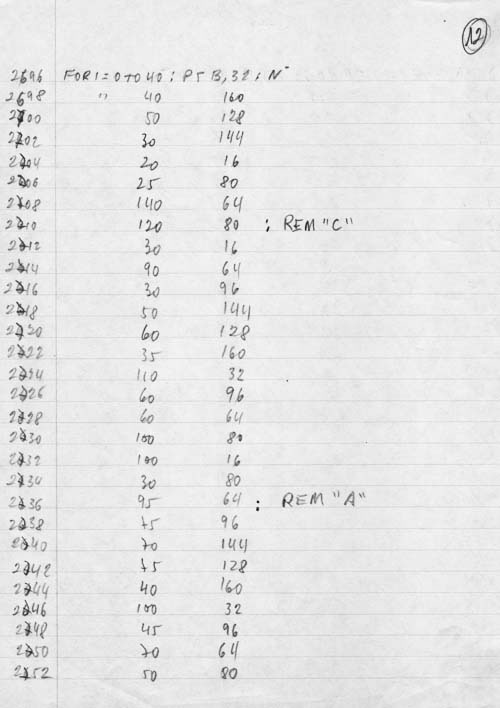 12
2696 FOR I = 0 TO 40 : P5 B, 32 : N
2698 " 40 160
2700 50 128
2702 30 144
2704 20 16
2706 25 80
2708 140 64
2710 120 80 : REM "C"
2712 30 16
2714 90 64
2716 30 96
2718 50 144
2720 60 128
2722 35 160
2724 110 32
2726 60 96
2728 60 64
2730 100 80
2732 100 16
2734 30 80
2736 95 64 : REM "A"
2738 75 96
2740 70 144
2742 75 128
2744 40 160
2746 100 32
2748 45 96
2750 70 64
2752 50 80